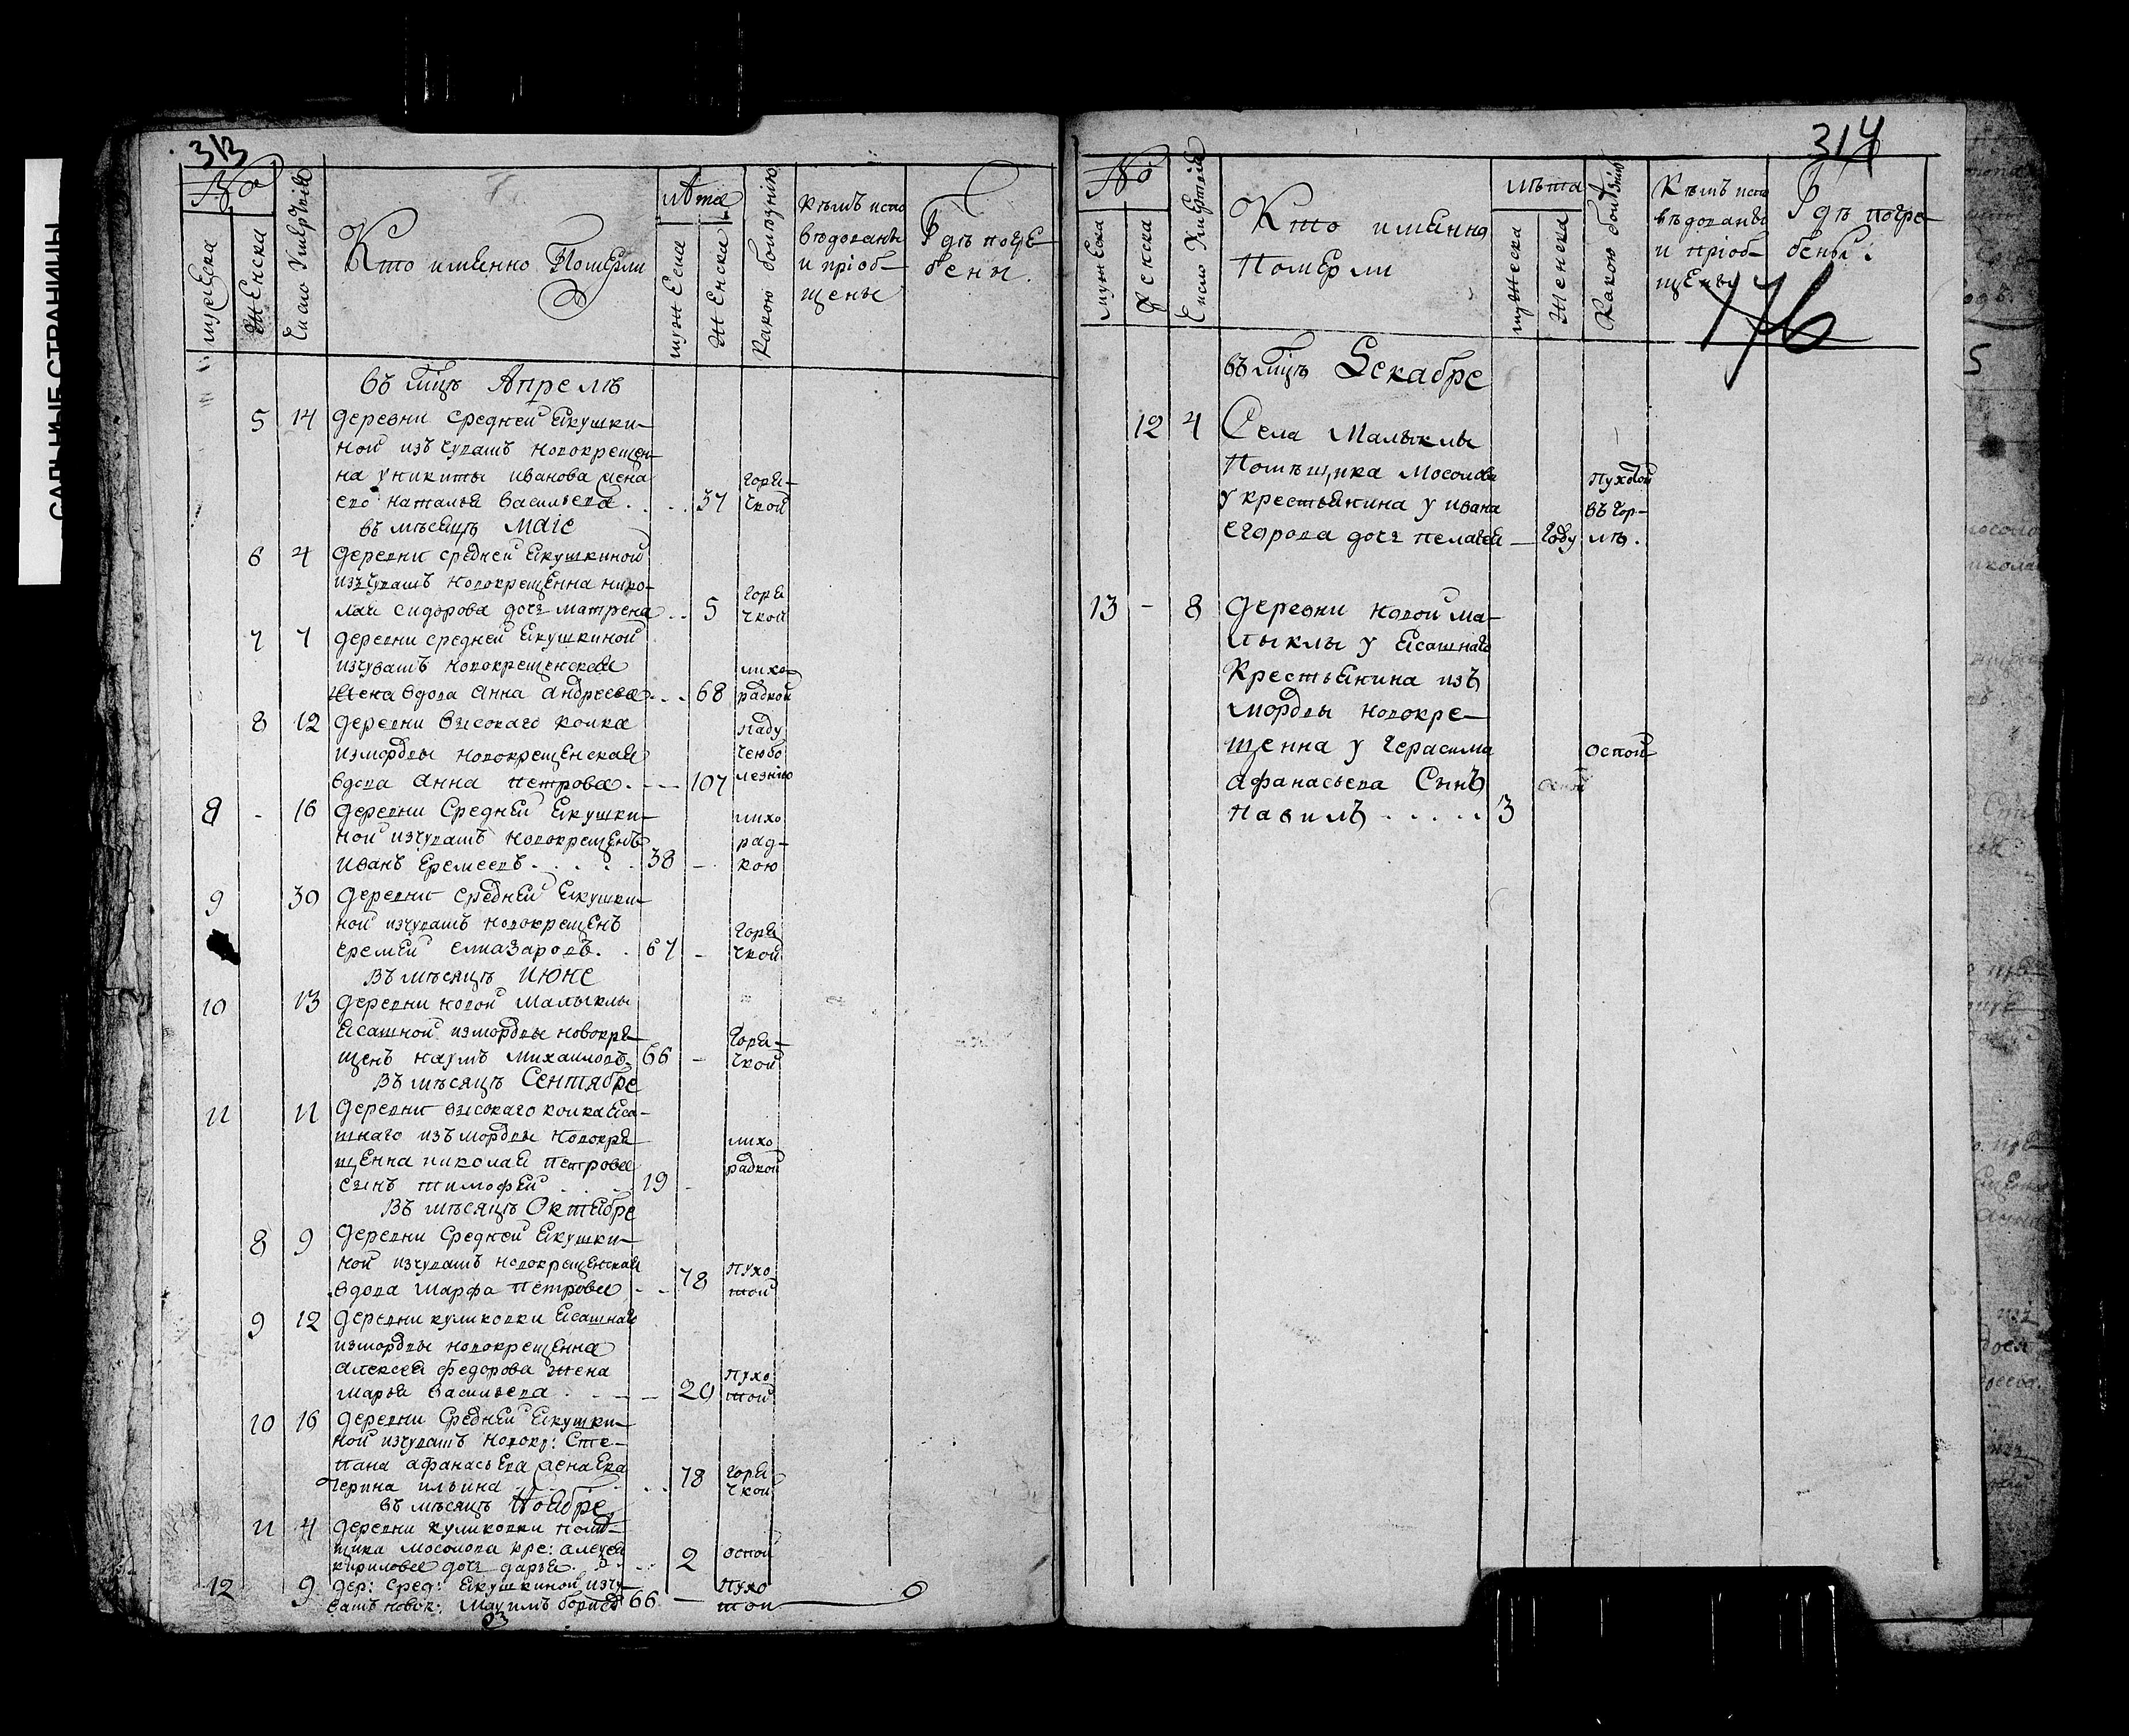 САЛЬНЫЕ СТРАНИЦЫ
313
№
мужеска
женска
число умертвiя
Кто имянно Померли
лѣта
мужеска
женска
какою болѣзнiю
кѣмъ испо
вѣдованы
и прiоб-
щены
Гдѣ погре
бены.
въ мцѣ Апрелѣ
5 14 деревни Средней Якушки-
ной изъ чувашъ новокрещен-
на у никиты иванова жена
его наталья васильева . . . 37 горя-
чкой
въ мѣсяцѣ Маiе
6 4 деревни средней Якушкиной
изъ чувашъ новокрещенна нико-
лая сидорова дочь матрена . . 5 горя
чкой
7 7 деревни средней Якушкиной
изчувашъ новокрещенская
жена вдова Анна Андреева . . . 68 лихо
радкой
8 12 деревни высокаго колка
измордвы новокрещенская
вдова Анна петрова . — — 107 паду
чею бо
лезнiю
8 - 16 деревни Средней Якушки-
ной изчувашъ новокрещенъ
иванъ Еремеевъ . . . . 38 — лихо
рад-
кою
9 30 деревни Средней Якушки-
ной изчувашъ новокрещенъ
еремей елиазаровъ . . 67 — горя
чкой
Въ мѣсяцѣ Июне
10 13 деревни новой Малыклы
Ясашной измордвы новокре-
щенъ наумъ михаиловъ 66 — горя-
чкой
Въ мѣсяцѣ Сентябре
11 11 деревни высокаго колка Яса-
шнаго изъ мордвы новокре
щенна николая петрова
сынъ тимофей . . . . 19 - лихо
радкой
Въ мѣсяцѣ Октябре
8 9 деревни Средней Якушки-
ной изчувашъ новокрещенская
вдова марфа петрова . . 78 пухо
той
9 12 деревни куликовки Ясашнаго
измордвы новокрещенна
Алексея федорова жена
марья васильева . — — 20 пухо
той
10 16 деревни Средней Якушки-
ной изчувашъ новокр: Сте-
пана афанасьева жена Ека
терина ильина . . . . 78 горя
чкой
въ мѣсяцѣ Ноябре
11 4 деревни куликовки помѣ-
щика мосолова кре: алексея
кирилова дочь дарья . . . 2 оспой
12 9 дер: сред: Якушкиной изчу-
вашъ новок: 66 — пухо
той
314
№
мужеска
женска
Число умертвiя
Кто имянно
Померли
лѣта
мужеска
женска
Какою болѣзнiю
Кѣмъ испо
вѣдованы
и прiоб-
щены
Гдѣ погре-
бены:
176
въ мцѣ Декабре
12 4 Села Малыклы
Помѣщика Мосолова
у крестьянина у ивана
егорова дочь пелагея — году пухотой
въ гор-
лѣ.
13 - 8 деревни новой ма-
лыклы у Ясашнаго
Крестьянина изъ
мордвы новокре-
щенна у герасима
афанасьева Сынъ
павилъ . . . . . 3 оспой